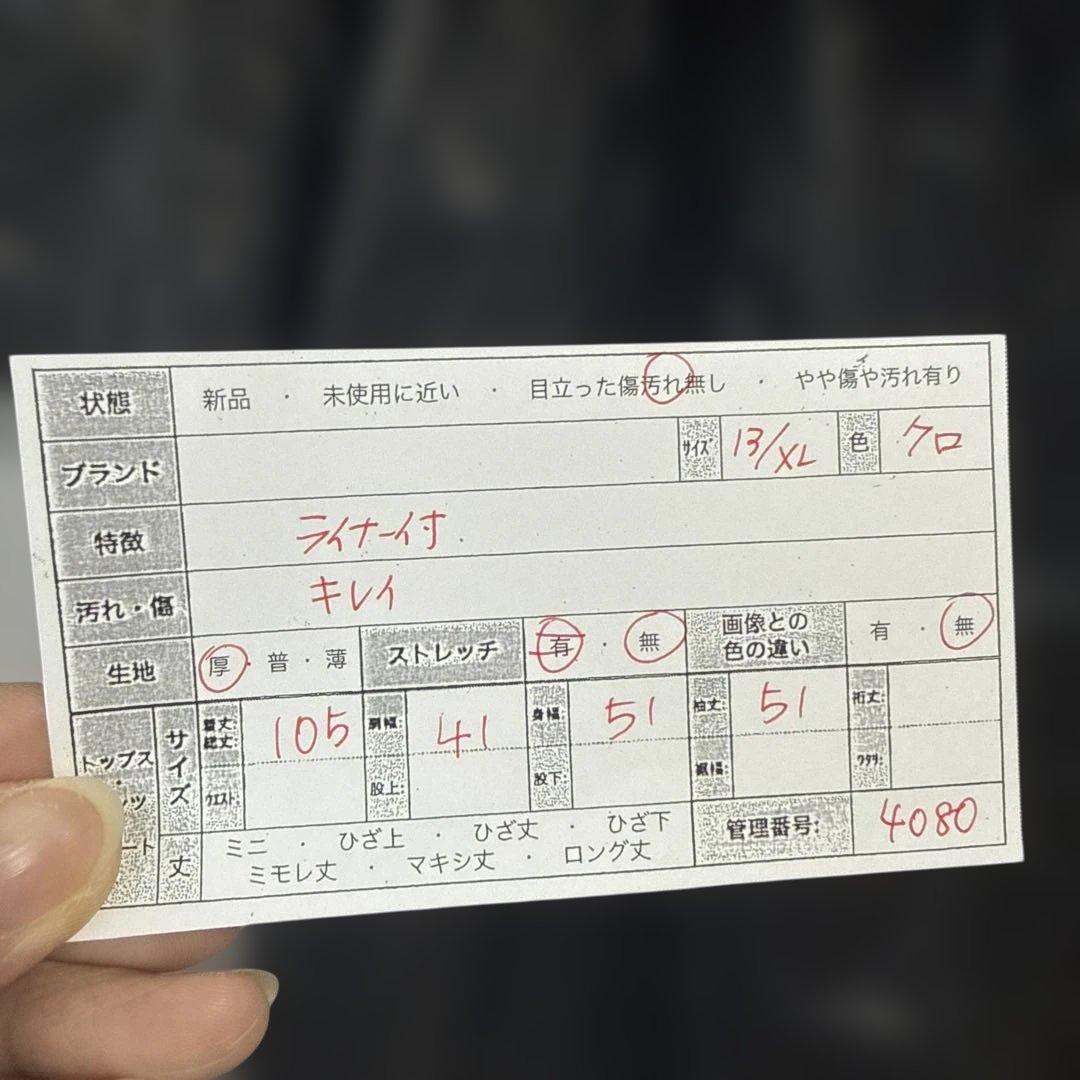 状態 新品 ・ 未使用に近い ・ 目立った傷汚れ無し ・ やや傷や汚れ有り
ブランド サイズ 13/XL 色 クロ
特徴 ライナー付
汚れ・傷 キレイ
生地 厚・普・薄 ストレッチ 有 ・ 無 画像との色の違い 有 ・ 無
トップス サイズ 着丈:総丈: 105 肩幅: 41 身幅: 51 袖丈: 51 裄丈:
ウエスト: 股上: 股下: 裾幅: ワタリ:
丈 ミニ ・ ひざ上 ・ ひざ丈 ・ ひざ下
ミモレ丈 ・ マキシ丈 ・ ロング丈
管理番号: 4080